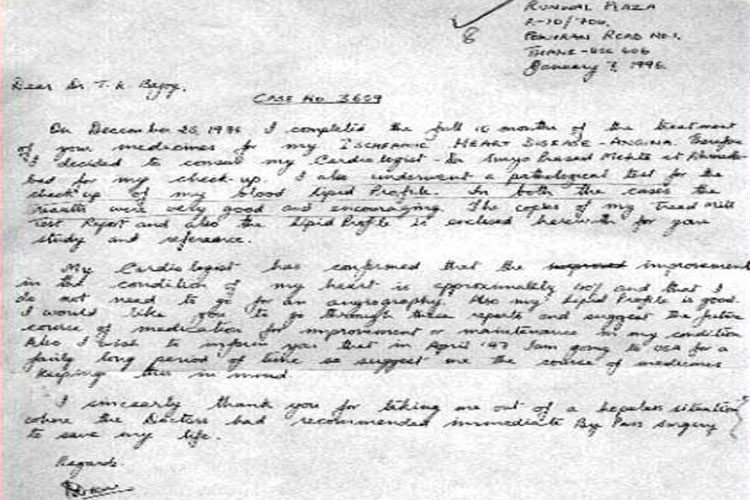 RUNWAL PLAZA
THANE
January 7, 1996
8
Dear Dr T. K.
CASE NO 3659
On December 25, 1996 I completed the full 16 months of the treatment
of your medicines for my ISCHEAMIC HEART DISEASE - ANGINA. Therefore
I decided to consult my Cardiologist - Dr Prasad Mehta at
bad for my check-up. I also underwent a pathological test for the
check up of my blood Lipid Profile. In both the cases the
results were very good and encouraging. The copies of my Tread Mill
Test Report and also the Lipid Profile is enclosed herewith for your
study and reference.
My Cardiologist has confirmed that the improvement
in the condition of my heart is approximately and that I
do not need to go for an angiography. Also my Lipid Profile is good.
I would like you to go through these reports and suggest the future
course of medication for improvement or maintenance in my condition
Also I wish to inform you that in April '97 I am going to USA for a
fairly long period of time so suggest me the course of medicines
keeping this in mind.
I sincearly thank you for taking me out of a hopeless situation
where the Doctors had recommended immediate By Pass surgery
to save my life.
Regards